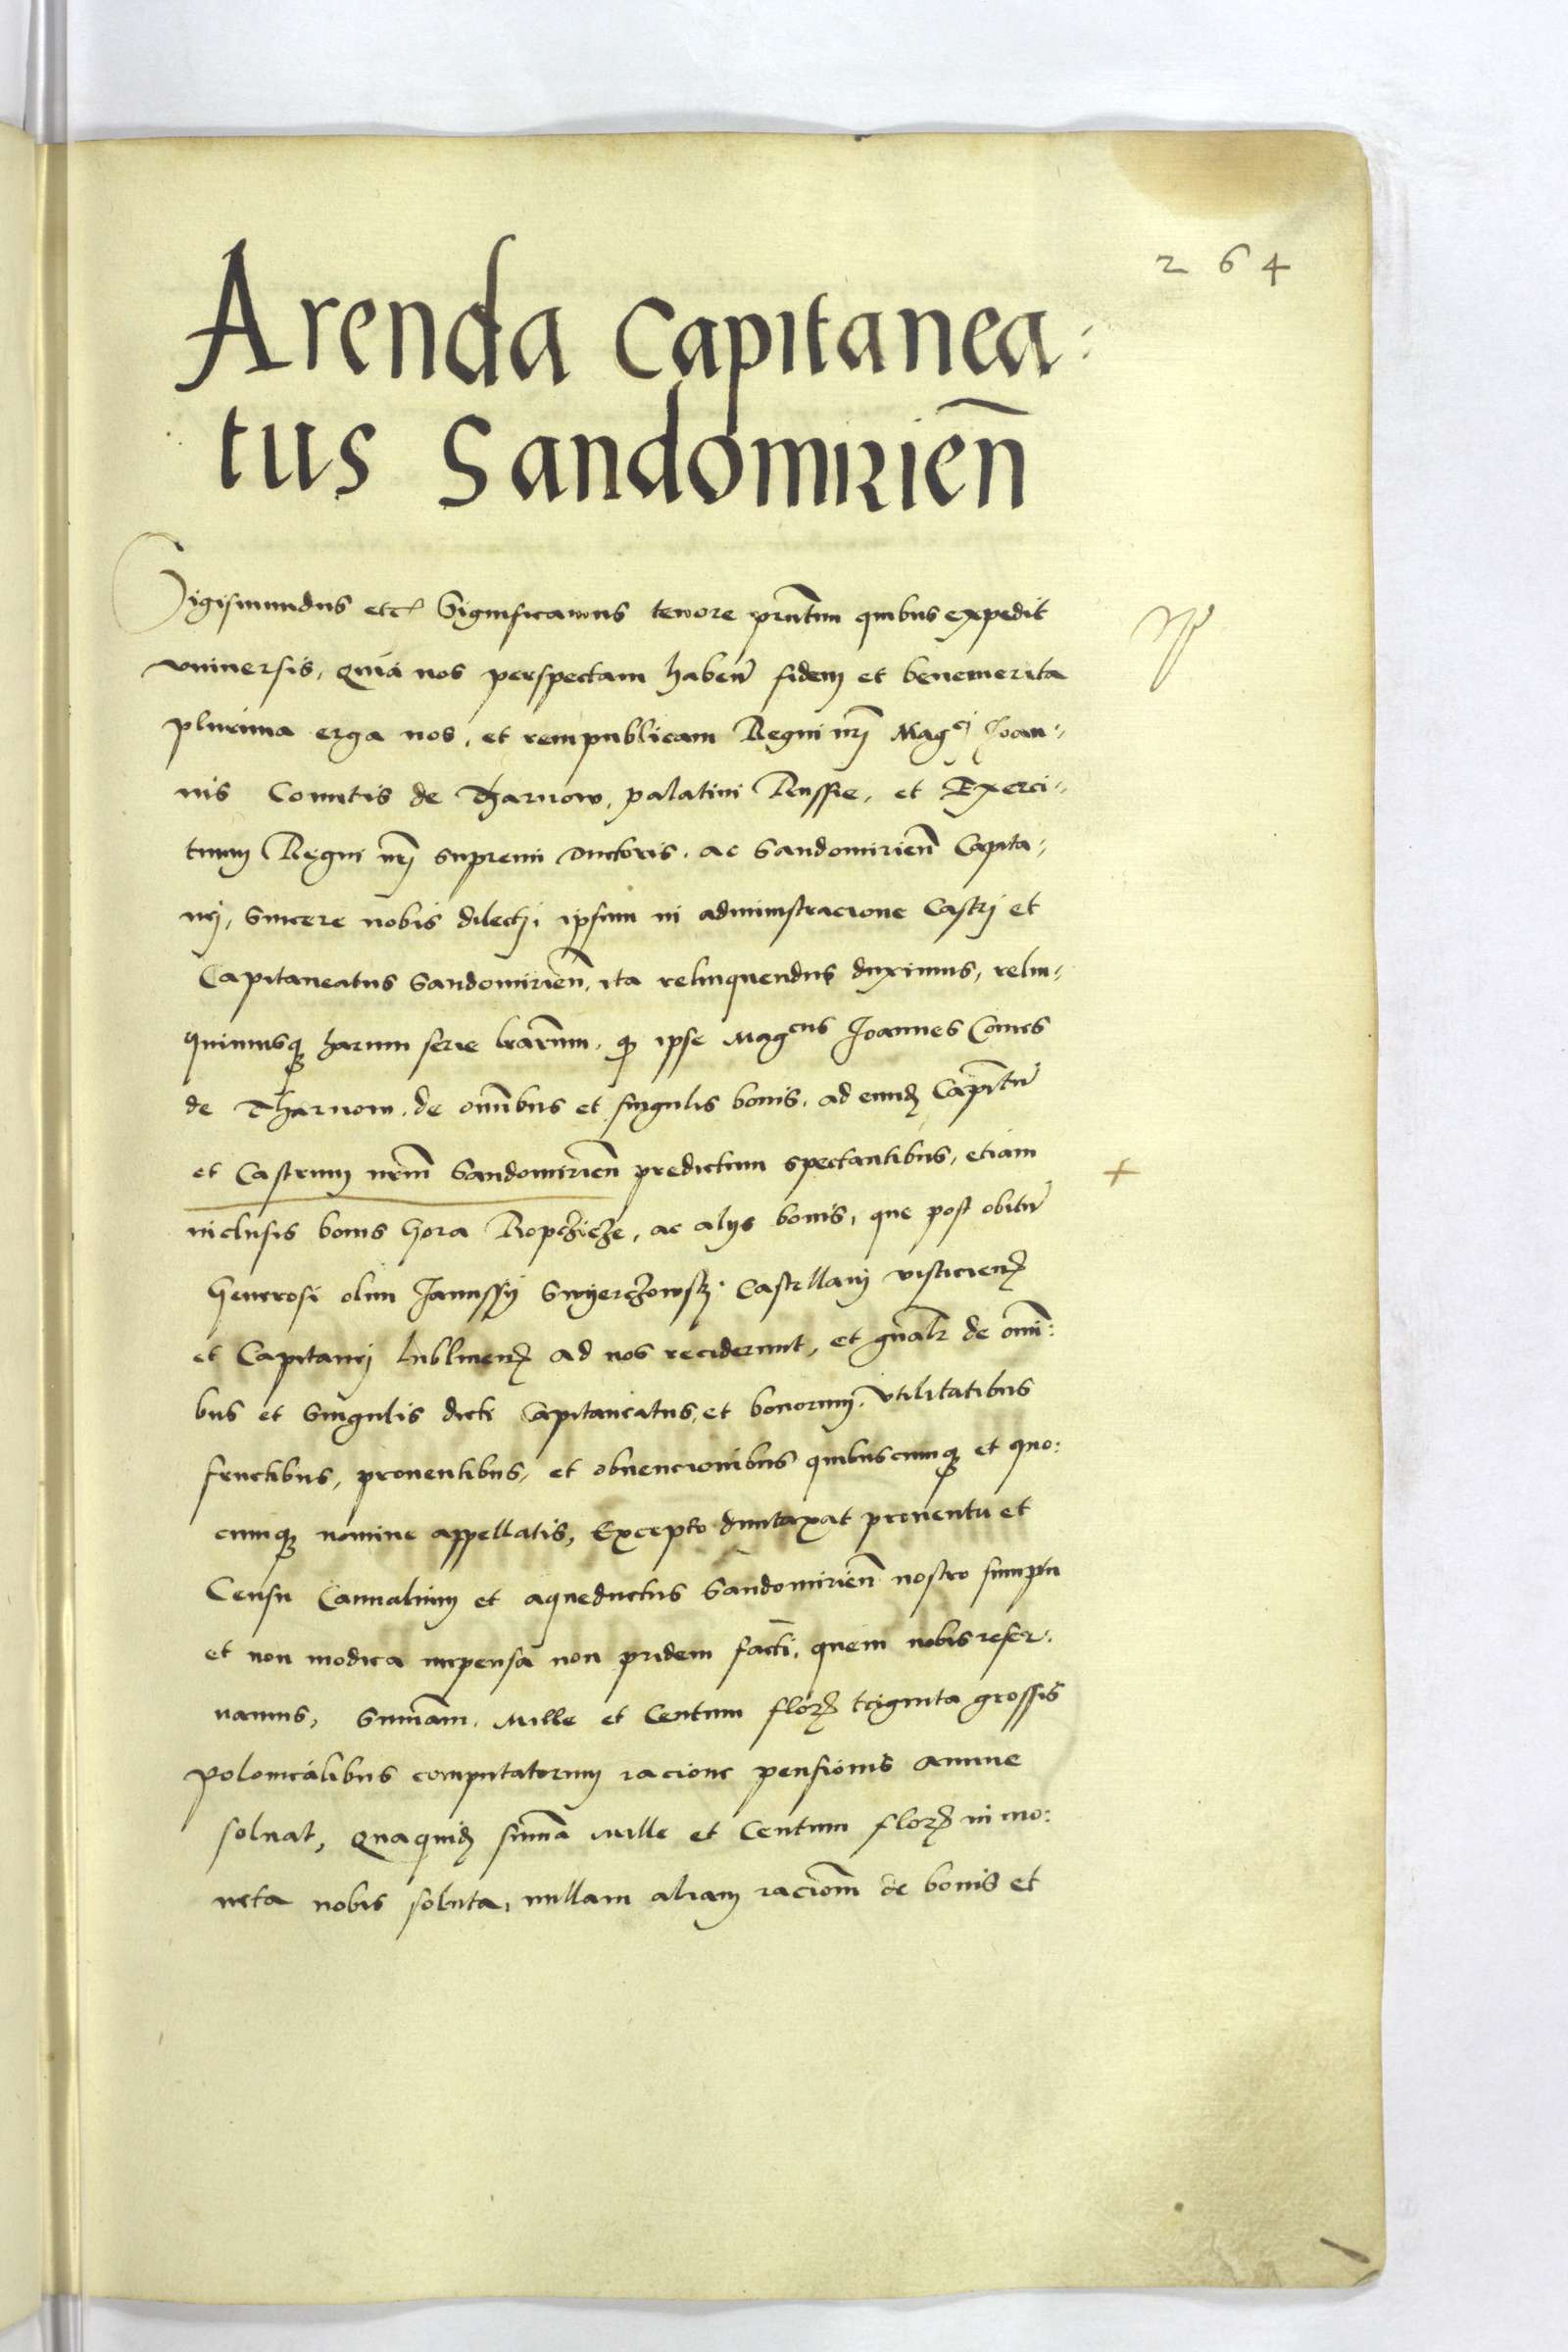 264
Arenda Capitanea-
tus Sandomirien̄
Sigismundus etc. Significamus tenore pn̄tium quibus expedit
vniuersis, Quia nos perspectam haben̄ fidem et benemerita
plurima erga nos, et rempublicam Regni nr̄j Magcj Joan-
nis Comitis de Tharnow, palatini Russie, et Exerci-
tuum Regni nr̄j supremi ductoris, ac Sandomirien̄ Capita-
nej, Sincere nobis dilectj, ipsum in administracione Castrj et
Capitaneatus Sandomirien̄, ita relinquendus duximus, relin-
quimusqȝ harum serie lr̄arum, qȝ ipse Magcus Joannes Comes
de Tharnow, de omībus et singulis bonis, ad eundȝ Capn̄tū
et Castrum nrm̄ Sandomirien̄ predictum spectantibus, etiam
inclusis bonis hora Ropczicze, ac alijs bonis, que post obitū
Generosi olim Janussij Swyerczowskj Castellanj visliciens̄
et Capitanej lubliniens̄ ad nos reciderunt, et gn̄alr̄ de omī:
bus et singulis dicti Capitaneatus, et bonorum, vtilitatibus
fructibus, prouentibus, et obuencionibus quibuscumqȝ et quo:
cumqȝ nomine appellatis, Excepto duntaxat prouentu et
Censu Cannalium et aqueductus Sandomirien̄ nostro sumptu
et non modica impensa non pridem facti, quem nobis reser-
uamus, Sumam̄, Mille et Centum florȝ triginta grossis
polonicalibus computatorum racione pensionis annue
soluat, Quaquidȝ suma̅ Mille et Centum florȝ in mo:
neta nobis soluta, nullam aliam raciom̄ de bonis et